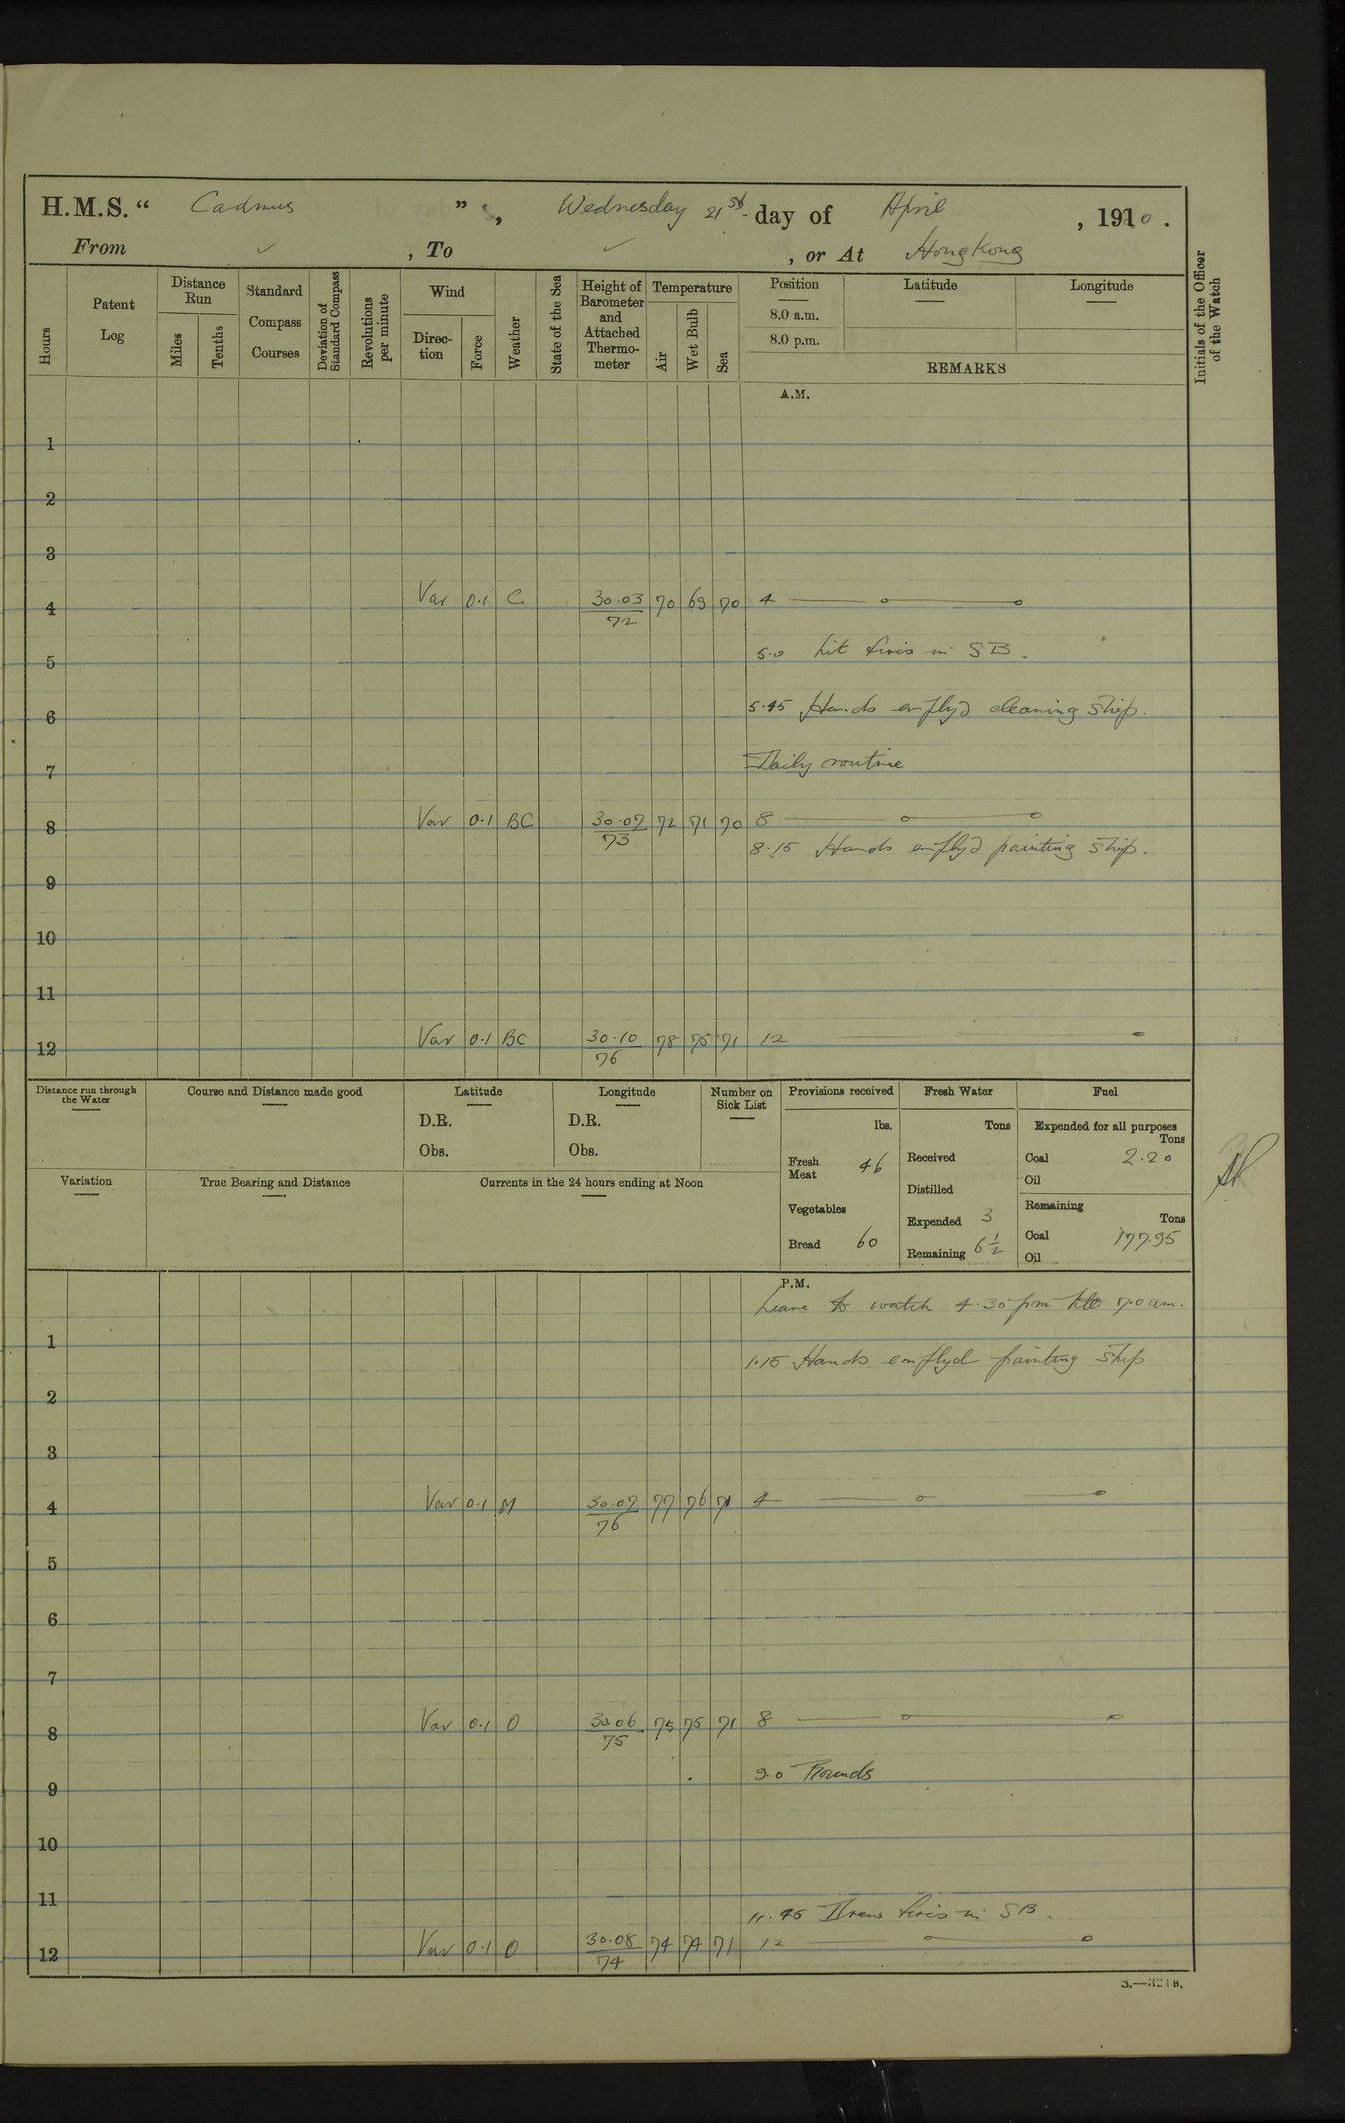 H.M.S. “ Cadmus ”, Wednesday 21st day of April, 1920.
From ✓, To ✓, or At Hong Kong
Hours
Patent Log
Distance Run
Miles
Tenths
Standard Compass Courses
Deviation of Standard Compass
Revolutions per minute
Wind
Direction
Force
Weather
State of the Sea
Height of Barometer and Attached Thermometer
Temperature
Air
Wet Bulb
Sea
Position
8.0 a.m.
8.0 p.m.
Latitude
Longitude
REMARKS
Initials of the Officer of the Watch
A.M.
1
2
3
4 Var 0.1 C 30.03/72 70 69 70 4
5 5.0 Lit fires in SB.
6 5.45 Hands emplyd cleaning ship.
7 Daily routine
8 Var 0.1 BC 30.07/73 72 71 70 8
8.15 Hands emplyd painting ship.
9
10
11
12 Var 0.1 BC 30.10/76 78 75 71 12
Distance run through the Water
Course and Distance made good
Latitude
D.R.
Obs.
Longitude
D.R.
Obs.
Number on Sick List
Provisions received
lbs.
Fresh Meat 46
Vegetables
Bread 60
Fresh Water
Tons
Received
Distilled
Expended 3
Remaining 6½
Fuel
Expended for all purposes
Tons
Coal 2.20
Oil
Remaining
Tons
Coal 177.95
Oil
Variation
True Bearing and Distance
Currents in the 24 hours ending at Noon
P.M.
Leave to watch 4.30 pm to 7.0 am.
1 1.15 Hands emplyd painting ship
2
3
4 Var 0.1 M 30.07/76 77 76 71 4
5
6
7
8 Var 0.1 O 30.06/75 75 75 71 8
9 9.0 Rounds
10
11 11.45 Drew fires in SB.
12 Var 0.1 O 30.08/74 74 74 71 12